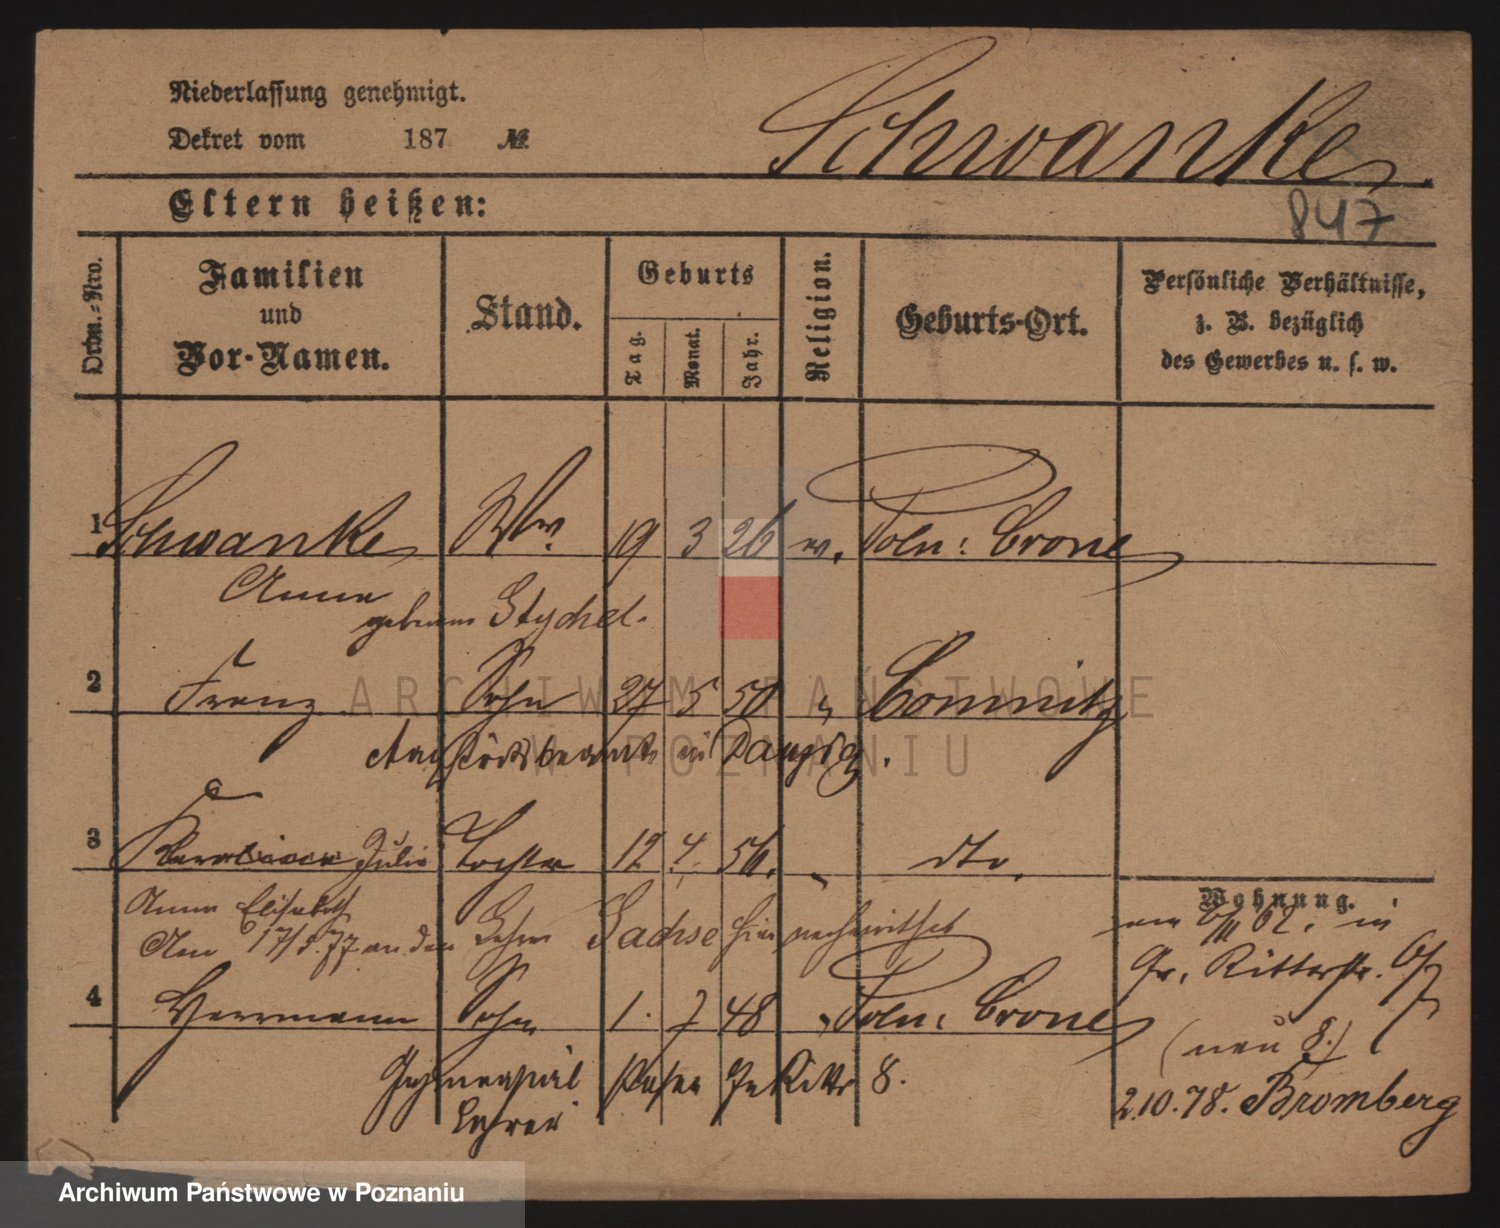 Niederlassung genehmigt.
Dekret vom 187 №
Schwanke
Eltern heißen:
847
Ordn.-Nro.
Familien
und
Vor-Namen.
Stand.
Geburts
Tag.
Monat.
Jahr.
Religion.
Geburts-Ort.
Persönliche Verhältnisse,
z. B. bezüglich
des Gewerbes u. s. w.
1 Schwanke Ww. 19 3 26 Poln: Crone
Anna
geborene Stychel.
2 Franz Sohn 27 5 50 Comnitz
in Danzig.
3 Julie Tochter 12 4. 56. dto.
Anna Elisabeth
Am 17/5.77 an den Sachse hier
Wohnung.
in
Gr. Ritterstr.
4 Herrmann Sohn 1. 7 48 Poln: Crone
(neu 8.)
Gymnasial Posen Gr Rittr 8.
Lehrer
2.10.78. Bromberg
ARCHIWUM PAŃSTWOWE
W POZNANIU
Archiwum Państwowe w Poznaniu